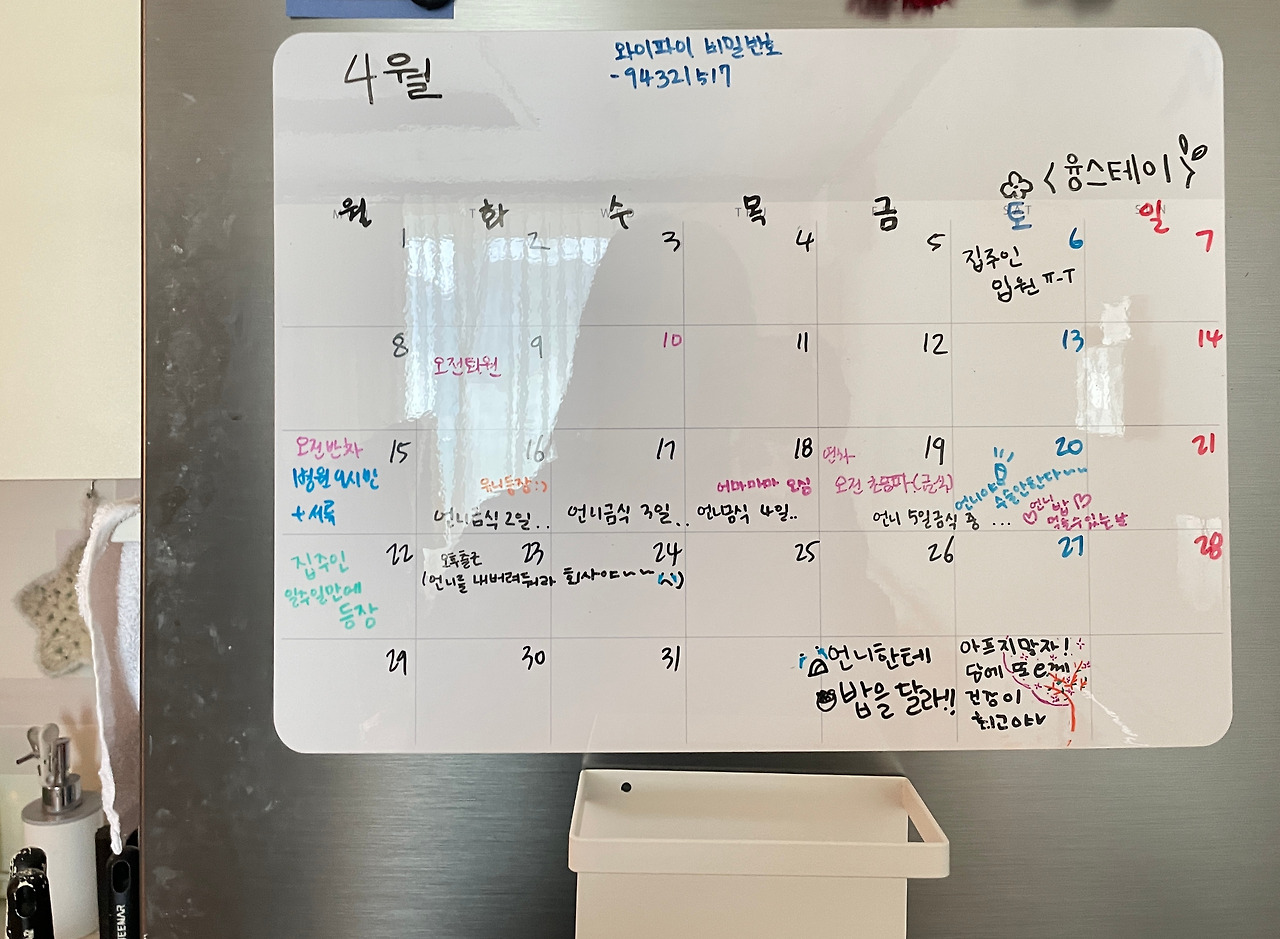 4월
와이파이 비밀번호
-94321517
<융스테이>
월 화 수 목 금 토 일
1 2 3 4 5 6 7
집주인
입원 ㅠ-ㅜ
8 9 10 11 12 13 14
오전퇴원
15 16 17 18 19 20 21
오전반차
병원 9시반
+ 서류
유니등장:)
언니금식 2일..
언니금식 3일..
어마마마 오심
언니금식 4일..
연차
오전 초음파(금식)
언니 5일금식 중 ...
언니야
수술안한다~~~
언니밥
먹을수있는날
22 23 24 25 26 27 28
집주인
일주일만에
등장
오후출근
(언니를 내버려둬라 회사야~~)
29 30 31
언니한테
밥을 달라!!
아프지말자!
담에 또 올께
건강이
최고야~